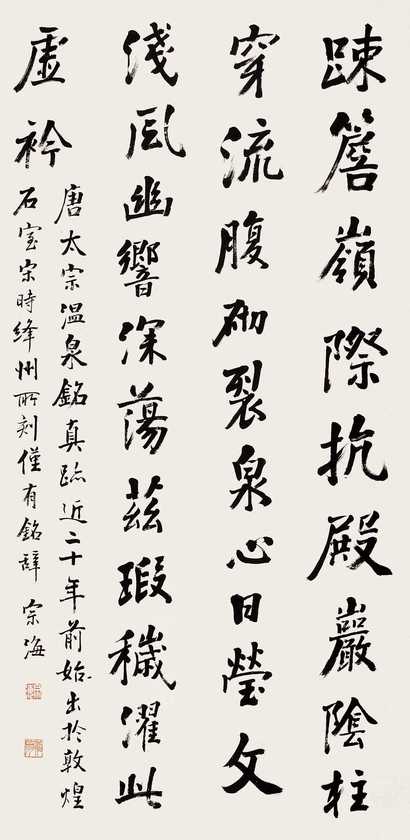 踈簷嶺際抗殿巖陰柱
穿流腹砌裂泉心日瑩文
淺風幽響深蕩茲瑕穢濯此
虛衿
唐太宗溫泉銘真跡近二十年前始出於敦煌
石室宋時絳州所刻僅有銘辭 宗海